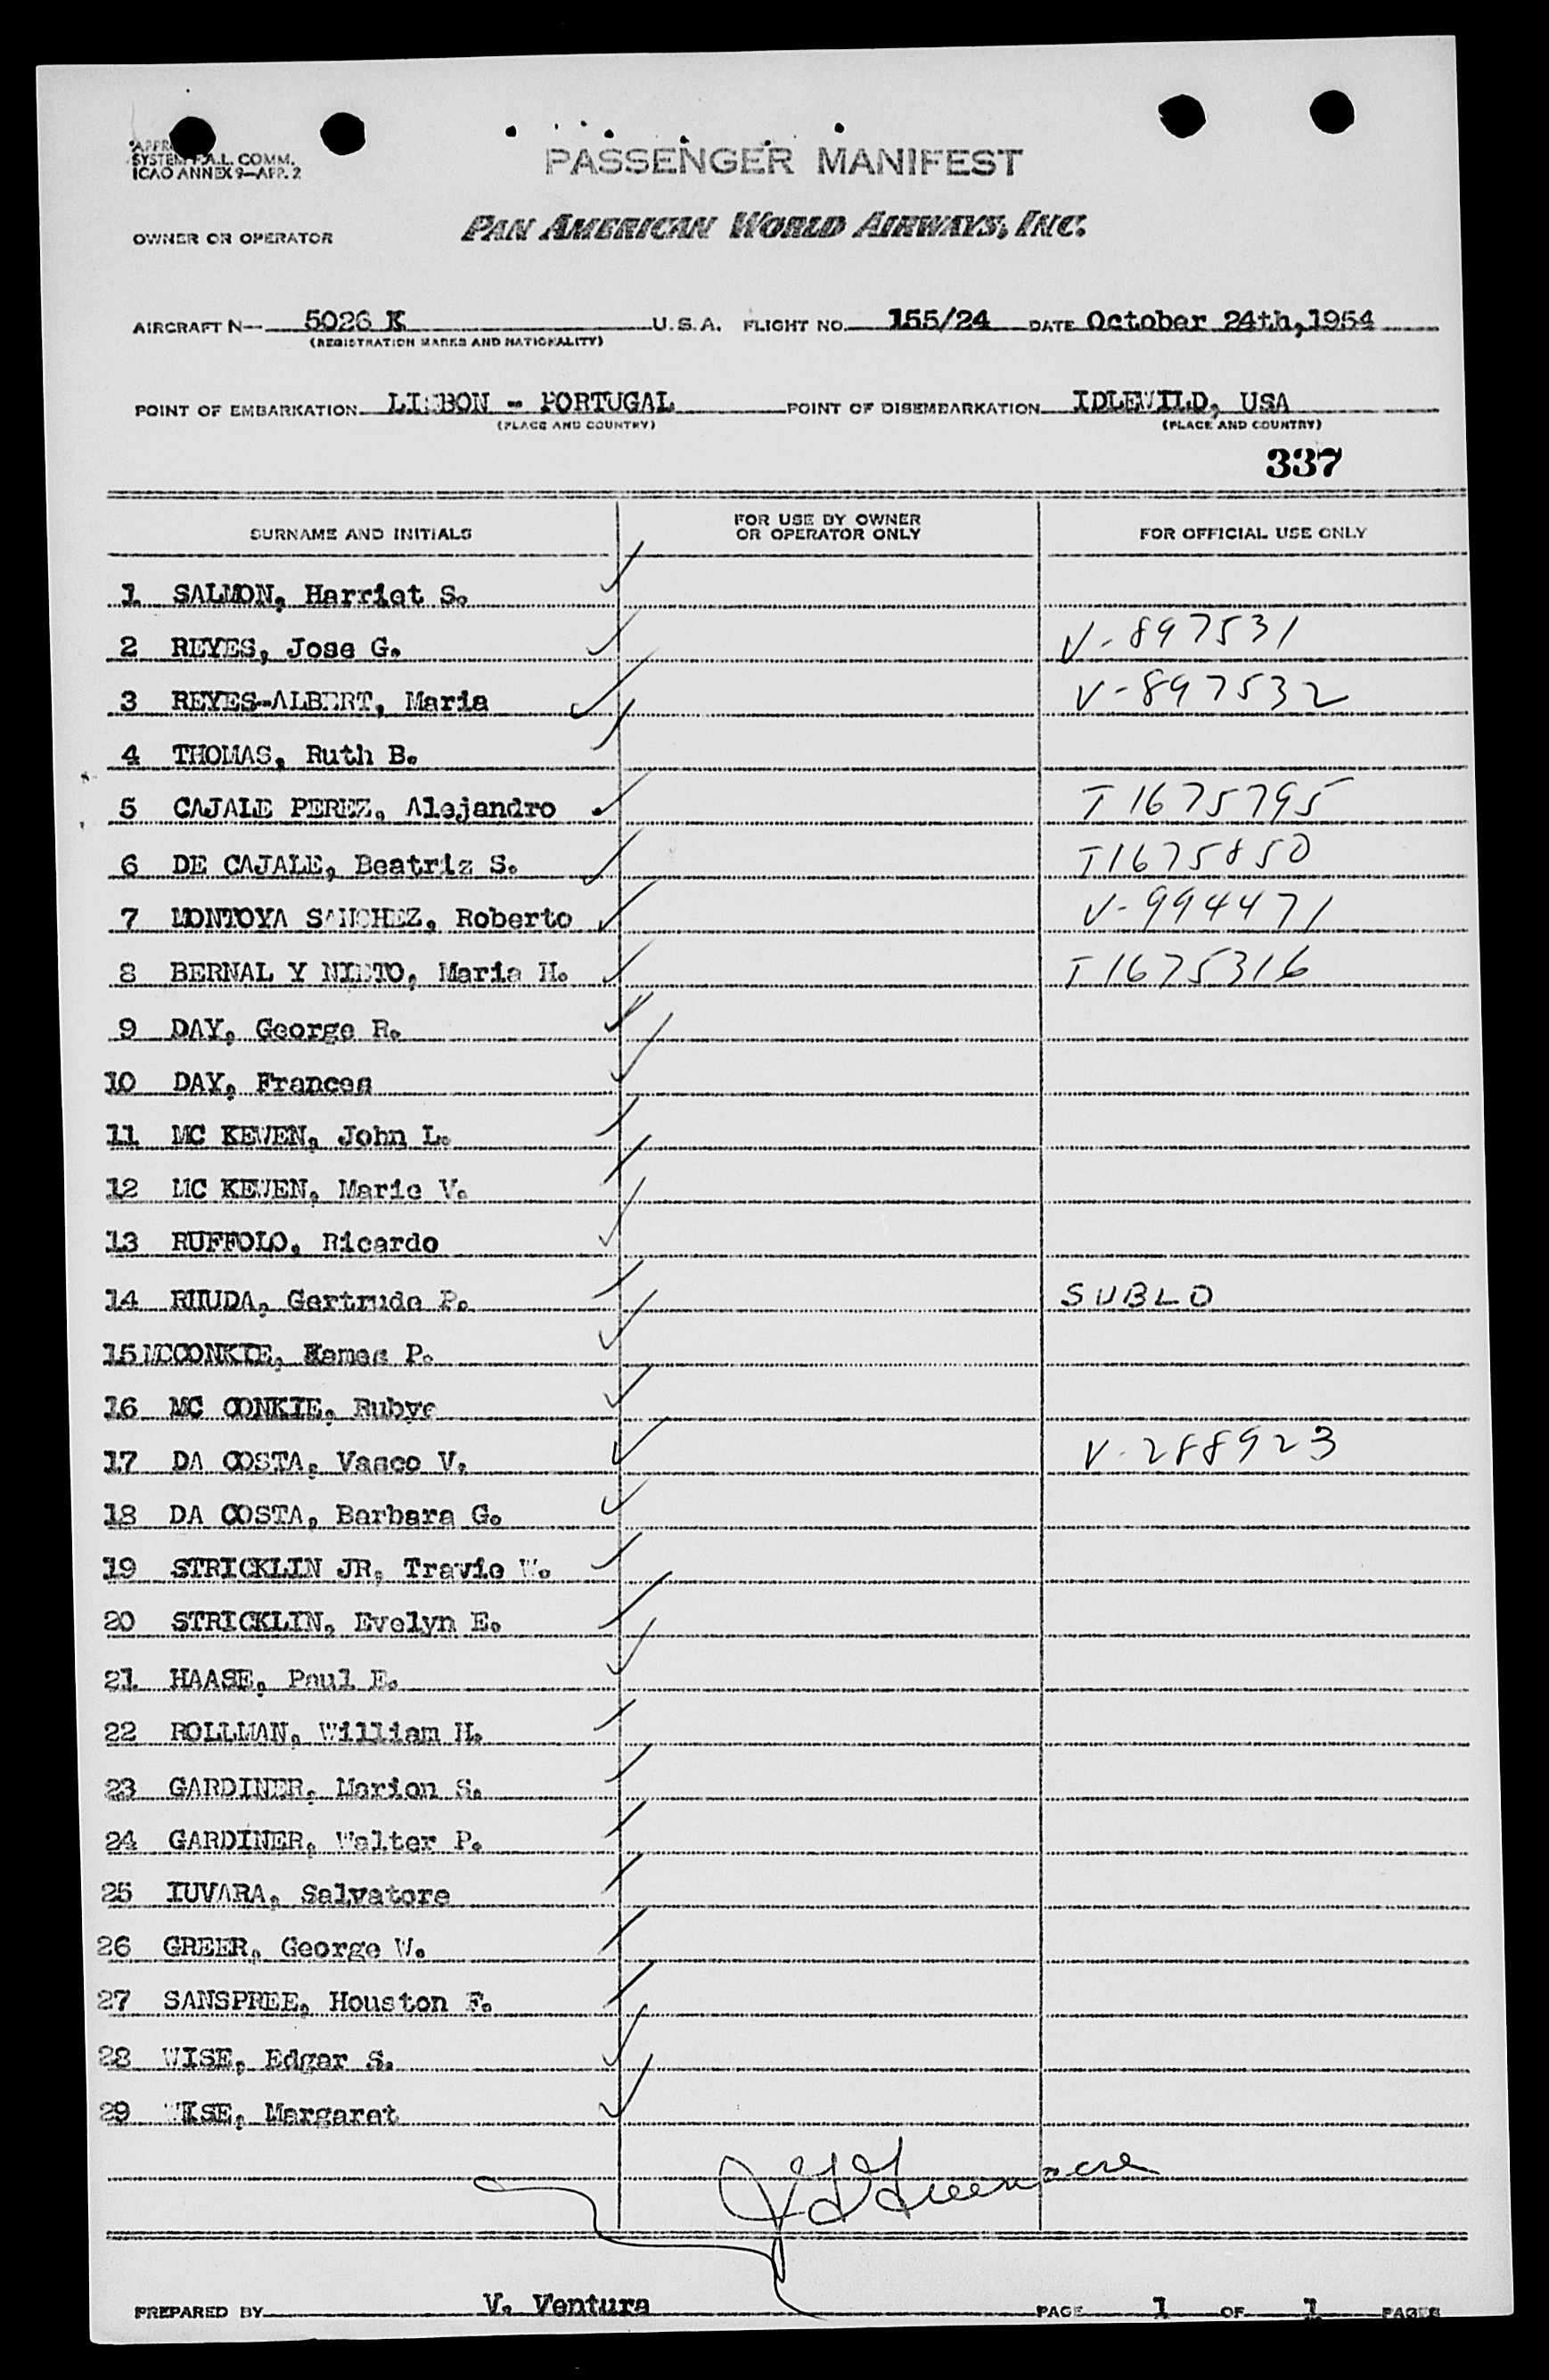 SYSTEM F.A.L. COMM.
ICAO ANNEX 9—APP. 2
PASSENGER MANIFEST
OWNER OR OPERATOR PAN AMERICAN WORLD AIRWAYS, INC.
AIRCRAFT N— 5026 K U.S.A. FLIGHT NO. 155/24 DATE October 24th, 1954
(REGISTRATION MARKS AND NATIONALITY)
POINT OF EMBARKATION LISBON - PORTUGAL POINT OF DISEMBARKATION IDLEWILD, USA
(PLACE AND COUNTRY) (PLACE AND COUNTRY)
337
SURNAME AND INITIALS FOR USE BY OWNER OR OPERATOR ONLY FOR OFFICIAL USE ONLY
1 SALMON, Harriet S.
2 REYES, Jose G. V-897531
3 REYES-ALBERT, Maria V-897532
4 THOMAS, Ruth B.
5 CAJALE PEREZ, Alejandro T1675795
6 DE CAJALE, Beatriz S. T1675850
7 MONTOYA SANCHEZ, Roberto V-994471
8 BERNAL Y NIETO, Maria H. T1675316
9 DAY, George R.
10 DAY, Frances
11 MC KEWEN, John L.
12 MC KEWEN, Marie V.
13 RUFFOLO, Ricardo
14 RHUDA, Gertrude P. SUBLO
15 MCCONKIE, P.
16 MC CONKIE, Rubye
17 DA COSTA, Vasco V. V-288923
18 DA COSTA, Barbara G.
19 STRICKLIN JR, Travis W.
20 STRICKLIN, Evelyn E.
21 HAASE, Paul E.
22 ROLLMAN, William H.
23 GARDINER, Marion S.
24 GARDINER, Walter P.
25 IUVARA, Salvatore
26 GREER, George W.
27 SANSPREE, Houston F.
28 WISE, Edgar S.
29 WISE, Margaret
PREPARED BY V. Ventura PAGE 1 OF 1 PAGES